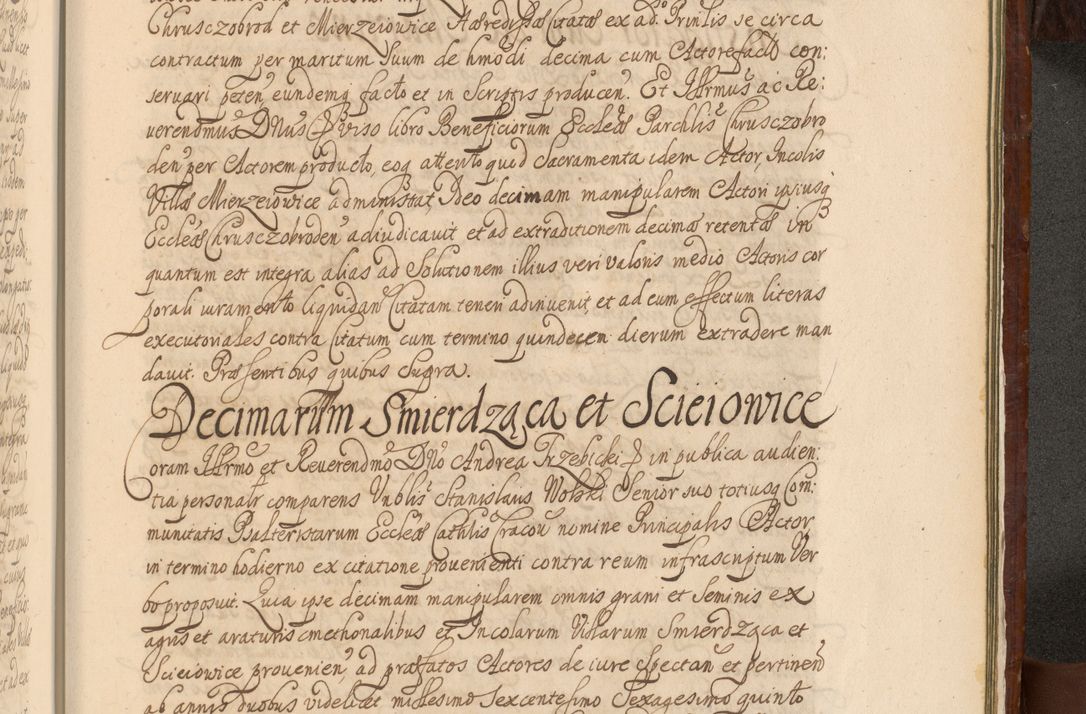 Chrusczobrod et Mierzeiowice Hæredissæ Citatæ ex ad. Prinlis se circa
contractum per maritum suum de hmodi decima cum Actore facto con:
seruari peten, eundemq facto et in Scriptis producen. Et Illrmus ac Re:
uerendmus Dnus viso libro Beneficiorum Eccleæ Parchlis Chrusczobro
den per Actorem producto, eoq attento quod Sacramenta idem Actor, Incolis
Villæ Mierzeiowice administrat, Ideo decimam manipularem Actori ipsiusq
Eccleæ Chrusczobroden adiudicauit et ad extraditionem decimæ retentæ in
quantum est integra alias ad Solutionem illius veri valoris medio Actoris cor
porali iuramento liquidan Citatam teneri adinuenit, et ad eum effectum literas
executoriales contra Citatum cum termino quindecem dierum extradere man
dauit. Præsentibus quibus supra.
Decimarum Smierdząca et Scieiowice
Coram Illrmo et Reuerendmo Dno Andrea Trzebicki in publica audien:
tia personalr comparens Vnblis Stanislaus Wolski Senior suo totiusq Com:
munitatis Psalteristarum Eccleæ Cathlis Cracou nomine Principalis Actor,
in termino hodierno ex citatione prouenienti contra reum infrascriptum Ver
bo proposuit. Quia ipse decimam manipularem omnis grani et Seminis ex
agris et araturis cmethonalibus et Incolarum Villarum Smierdząca et
Scieiowice prouenien, ad præfatos Actores de iure spectan et pertinen
ab annis duobus videlicet millesimo Sexcentesimo Sexagesimo quinto